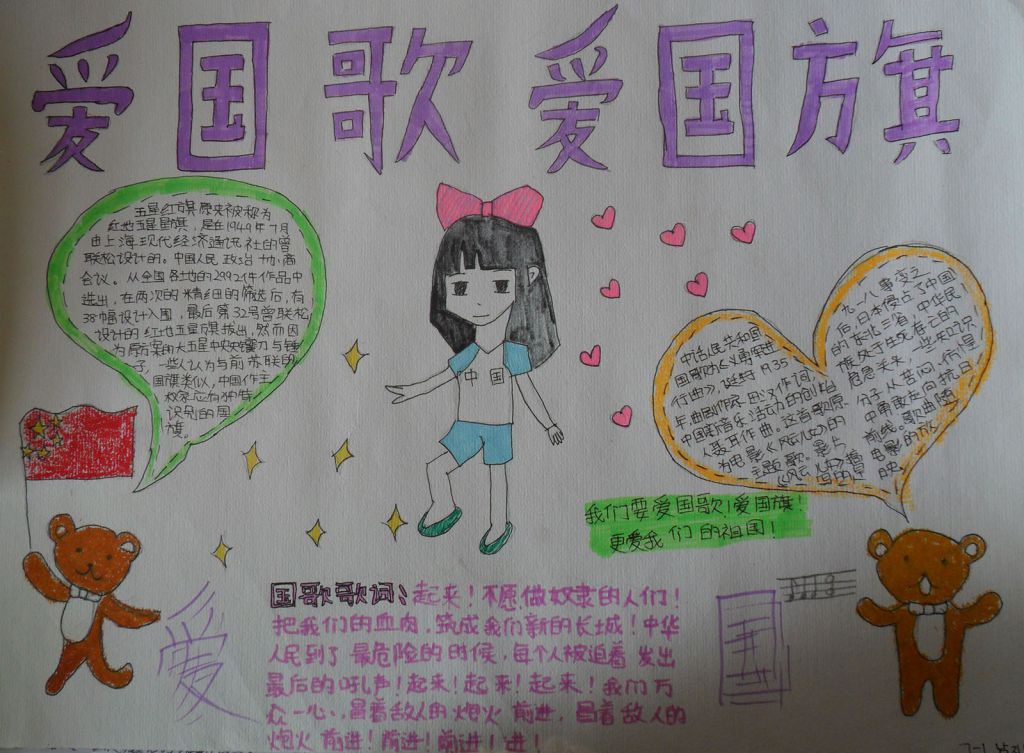 爱国歌 爱国旗
五星红旗原来被称为
红地五星星旗，是在1949年7月
由上海现代经济通讯社的曾
联松设计的。中国人民政治协商
会议。从全国各地的2992件作品中
选出，在两次的精细的筛选后，有
38幅设计入围，最后第32号曾联松
设计的红地五星旗拔出，然而因
为原方案的大五星中央镰刀与锤
子，一些人认为与前苏联的
国旗类似，中国作主
权家应有独特
识别的国
旗。
中国
中华人民共和国
国歌为《义勇军进
行曲》，诞生于1935
年，由剧作家田汉作词，
中国新音乐活动的创始
人聂耳作曲。这首歌原
为电影《风云儿女》的
主题歌。影片
《风云儿女》描
九一八事变之
后，日本侵占了中国
的东北三省，中华民
族处于生死存亡的
危急关头，一些知识
分子从苦闷、彷徨
中勇敢走向抗日
前线。歌曲随
电影的放
映
我们要爱国歌！爱国旗！
更爱我们的祖国！
国歌歌词：起来！不愿做奴隶的人们！
把我们的血肉，筑成我们新的长城！中华
人民到了最危险的时候，每个人被迫着发出
最后的吼声！起来！起来！起来！我们万
众一心，冒着敌人的炮火前进，冒着敌人的
炮火前进！前进！前进！进！
爱
国